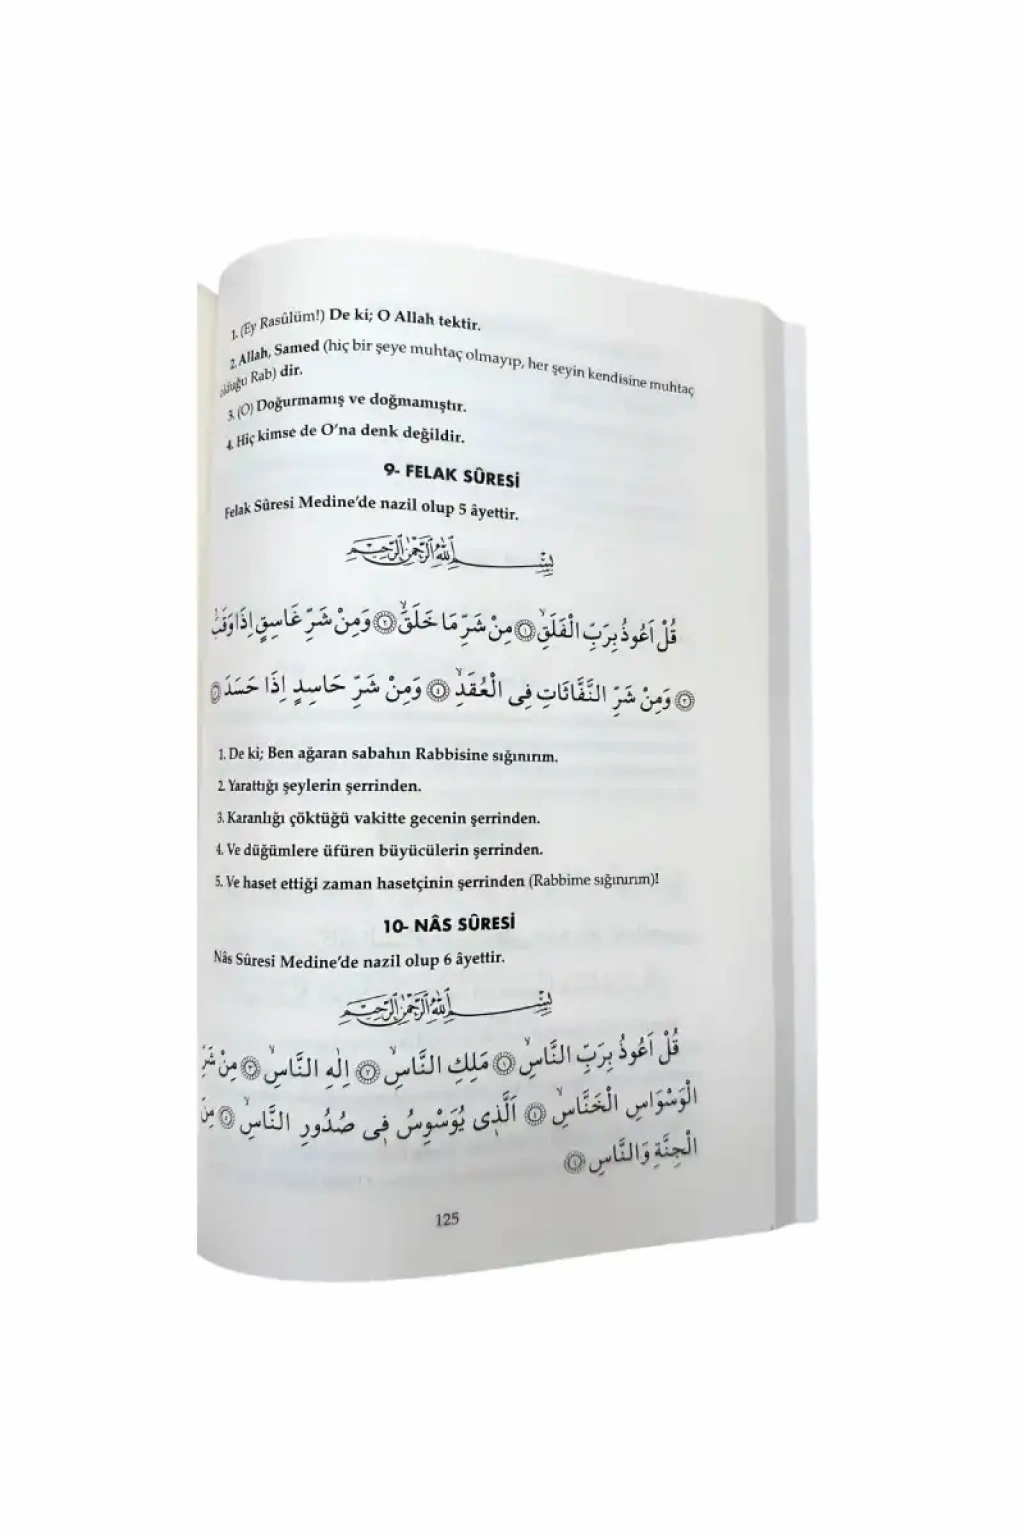 1. (Ey Rasûlüm!) De ki; O Allah tektir.
2. Allah, Samed (hiç bir şeye muhtaç olmayıp, her şeyin kendisine muhtaç
olduğu Rab) dir.
3. (O) Doğurmamış ve doğmamıştır.
4. Hiç kimse de O'na denk değildir.
9- FELAK SÛRESİ
Felak Sûresi Medine'de nazil olup 5 âyettir.
بِسْمِ اللّٰهِ الرَّحْمٰنِ الرَّحِيمِ
قُلْ اَعُوذُ بِرَبِّ الْفَلَقِۙ ﴿١﴾ مِنْ شَرِّ مَا خَلَقَۙ ﴿٢﴾ وَمِنْ شَرِّ غَاسِقٍ اِذَا وَقَبَۙ
﴿٣﴾ وَمِنْ شَرِّ النَّفَّاثَاتِ فِى الْعُقَدِۙ ﴿٤﴾ وَمِنْ شَرِّ حَاسِدٍ اِذَا حَسَدَ ﴿٥﴾
1. De ki; Ben ağaran sabahın Rabbisine sığınırım.
2. Yarattığı şeylerin şerrinden.
3. Karanlığı çöktüğü vakitte gecenin şerrinden.
4. Ve düğümlere üfüren büyücülerin şerrinden.
5. Ve haset ettiği zaman hasetçinin şerrinden (Rabbime sığınırım)!
10- NÂS SÛRESİ
Nâs Sûresi Medine'de nazil olup 6 âyettir.
بِسْمِ اللّٰهِ الرَّحْمٰنِ الرَّحِيمِ
قُلْ اَعُوذُ بِرَبِّ النَّاسِۙ ﴿١﴾ مَلِكِ النَّاسِۙ ﴿٢﴾ اِلٰهِ النَّاسِۙ ﴿٣﴾ مِنْ شَرِّ
الْوَسْوَاسِ الْخَنَّاسِۙ ﴿٤﴾ اَلَّذِى يُوَسْوِسُ فِى صُدُورِ النَّاسِۙ ﴿٥﴾ مِنَ
الْجِنَّةِ وَالنَّاسِ ﴿٦﴾
125